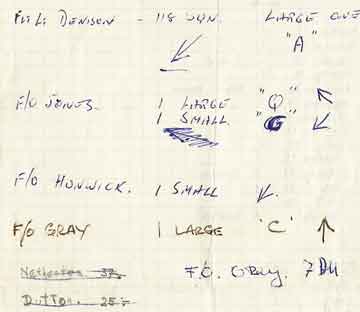 Flt Lt. DENISON - 118 SQN. LARGE ONE
"A"
F/O JONES. 1 LARGE "Q"
1 SMALL "G"
F/O HONWICK. 1 SMALL
F/O GRAY 1 LARGE 'C'
Netherton 37.
F.O. GRAY.
Dutton. 25